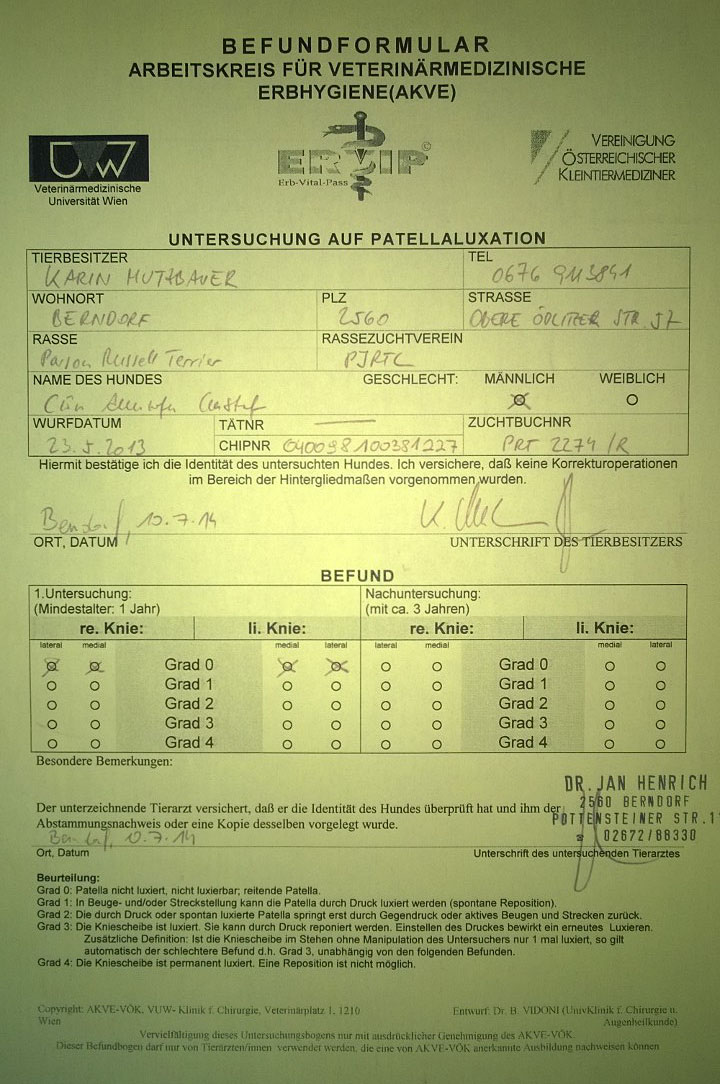 BEFUNDFORMULAR
ARBEITSKREIS FÜR VETERINÄRMEDIZINISCHE
ERBHYGIENE(AKVE)
VUW
Veterinärmedizinische
Universität Wien
ERVIP ©
Erb-Vital-Pass
VEREINIGUNG
ÖSTERREICHISCHER
KLEINTIERMEDIZINER
UNTERSUCHUNG AUF PATELLALUXATION
TIERBESITZER TEL
KARIN 0676 9113841
WOHNORT PLZ STRASSE
BERNDORF 2560 OBERE ÖDLITZER STR. 57
RASSE RASSEZUCHTVEREIN
Parson Russell Terrier PJRTC
NAME DES HUNDES GESCHLECHT: MÄNNLICH WEIBLICH
WURFDATUM TÄTNR ZUCHTBUCHNR
23.5.2013 CHIPNR 040098100381227 PRT 2274 /R
Hiermit bestätige ich die Identität des untersuchten Hundes. Ich versichere, daß keine Korrekturoperationen
im Bereich der Hintergliedmaßen vorgenommen wurden.
Berndorf, 10.7.14
ORT, DATUM UNTERSCHRIFT DES TIERBESITZERS
BEFUND
1.Untersuchung: Nachuntersuchung:
(Mindestalter: 1 Jahr) (mit ca. 3 Jahren)
re. Knie: li. Knie: re. Knie: li. Knie:
lateral medial medial lateral lateral medial medial lateral
Grad 0 Grad 0
Grad 1 Grad 1
Grad 2 Grad 2
Grad 3 Grad 3
Grad 4 Grad 4
Besondere Bemerkungen:
DR. JAN HENRICH
2560 BERNDORF
POTTENSTEINER STR.1
☎ 02672/88330
Der unterzeichnende Tierarzt versichert, daß er die Identität des Hundes überprüft hat und ihm der
Abstammungsnachweis oder eine Kopie desselben vorgelegt wurde.
Berndorf, 10.7.14
Ort, Datum Unterschrift des untersuchenden Tierarztes
Beurteilung:
Grad 0: Patella nicht luxiert, nicht luxierbar; reitende Patella.
Grad 1: In Beuge- und/oder Streckstellung kann die Patella durch Druck luxiert werden (spontane Reposition).
Grad 2: Die durch Druck oder spontan luxierte Patella springt erst durch Gegendruck oder aktives Beugen und Strecken zurück.
Grad 3: Die Kniescheibe ist luxiert. Sie kann durch Druck reponiert werden. Einstellen des Druckes bewirkt ein erneutes Luxieren.
Zusätzliche Definition: Ist die Kniescheibe im Stehen ohne Manipulation des Untersuchers nur 1 mal luxiert, so gilt
automatisch der schlechtere Befund d.h. Grad 3, unabhängig von den folgenden Befunden.
Grad 4: Die Kniescheibe ist permanent luxiert. Eine Reposition ist nicht möglich.
Copyright: AKVE-VÖK, VUW- Klinik f. Chirurgie, Veterinärplatz 1, 1210
Wien
Entwurf: Dr. B. VIDONI (UnivKlinik f. Chirurgie u.
Augenheilkunde)
Vervielfältigung dieses Untersuchungsbogens nur mit ausdrücklicher Genehmigung des AKVE-VÖK
Dieser Befundbogen darf nur von Tierärzten/innen verwendet werden, die eine von AKVE-VÖK anerkannte Ausbildung nachweisen können